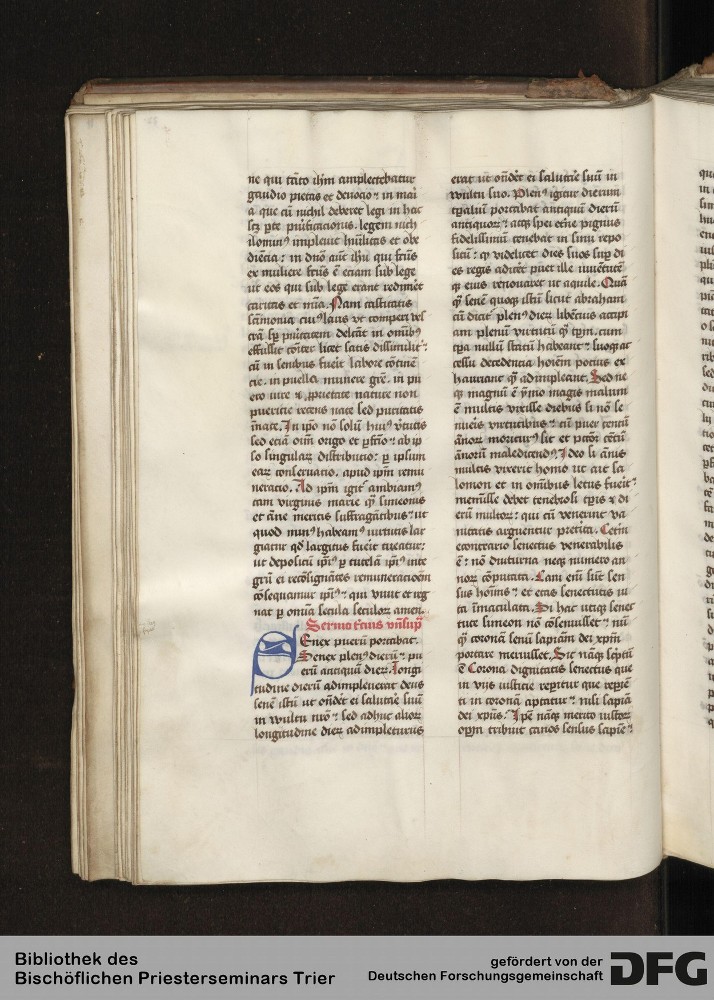 ne qui tāto ihm̄ amplectebatur
gaudio pietas et deuocio ⁊ in mari
a que cū nichil deberet legi in hac
sc̄z ꝑte purificacionis. legem nich
ilominꝰ impleuit hūilitas et obe
diēcia: in dn̄o aūt ihū qui fc̄us
ex muliere fc̄us ē eciam sub lege
ut eos qui sub lege erant redimēt
caritas et
effulsit
cū in senibus fuerit labore cōtinē
cie. in puella munere grē. in pu
ero uire ⁊ ꝓprietate nature non
puericie recens nate sed puritatis
īnate. In ip̄o nō solū huiꝰ v̓tutis
sed eciā oīm origo et ꝑfc̄io ⁊ ab ip̄
so singularū distributio: ꝑ ipsum
earū conseruacio. apud ip̄m remu
neracio. Ad ip̄m igit᷑ ambiamꝰ
tam virginis marie q̄ȝ simeonis
et āne meritis suffragātibus ⁊ ut
quod minꝰ habeamꝰ uirtutis lar
giatur qd̄ largitus fuerit tueatur:
ut depositū ip̄iꝰ ꝑ tutelā ip̄iꝰ inte
grū ei recōsignātes remuneracioēm
cōsequamur ip̄iꝰ ⁊ qui viuit et reg
nat ꝑ om̄ia secula seculoꝝ amen.
Sermo t̓cius
Senex puerū portabat.
Senex plenꝰ dierū ⁊ pu
erū antiquū dieꝝ. Longi
tudine dierū adimpleuerat deus
senē istū ut ondēt ei salutare suū
in vultu nr̄o ⁊ sed adhuc alioꝝ
longitudine dieꝝ adimpleturus
erat ut ondēt ei salutare suū in
vultu suo. Plenꝰ igitur dierum
tꝑaliū portabat antiquū dierū
antiquoꝝ ⁊ atqȝ spei et̓ne pignus
fidelissimū tenebat in sinu repo
situ: q videlicet dies suos suꝑ di
es regis adiret puer ille iuuētutē
qȝ eius renouaret ut aquile. Quā
q̄ȝ senē quoqȝ istū sicut abraham
cū dicit plenꝰ dieꝝ libēcius accipi
am plenū virtutū q̄ȝ tꝑm. cum
tꝑa nullū statū habeant ⁊ suoqȝ ac
cessu decedencia hoīem pocius ex
hauriant q̄ȝ adimpleant. Sed ne
qȝ magnū ē ymo magis malum
ē multis vixisse diebus si nō se
nueris virtutibus ⁊ cū puer centū
ānoꝝ moriturꝰ sit et pctor cētū
ānorū maledictus. Ideo si ānis
multis vixerit homo ut ait sa
lomon et in om̄ibus letus fuerit ⁊
meminisse debet tenebrosi tꝑis ⁊ di
erū multoꝝ: qui cū venerint va
nitatis arguentur pretita. Cet̓m
econtrario senectus venerabilis
ē: nō diuturna neqȝ numero an
noꝝ cōputata. Cani enī sūt sen
sus hoīnis ⁊ et etas senectutis ui
ta īmaculata. Si hac utiqȝ senec
tute simeon nō cōsenuisset ⁊ nū
q̄ȝ coronā senū sapiām dei xp̄m
portare meruisset. Sic nāqȝ sc̄ptū
ē Corona dignitatis senectus que
in vijs iusticie reꝑitur que reꝑiē
ti in coronā aptatur ⁊ nisi sapiā
dei xp̄us: Ip̄e nāqȝ merito iustoꝝ
oꝑm tribuit canos sensus sapiē ⁊
Bibliothek des
Bischöflichen Priesterseminars Trier
gefördert von der
Deutschen Forschungsgemeinschaft
DFG